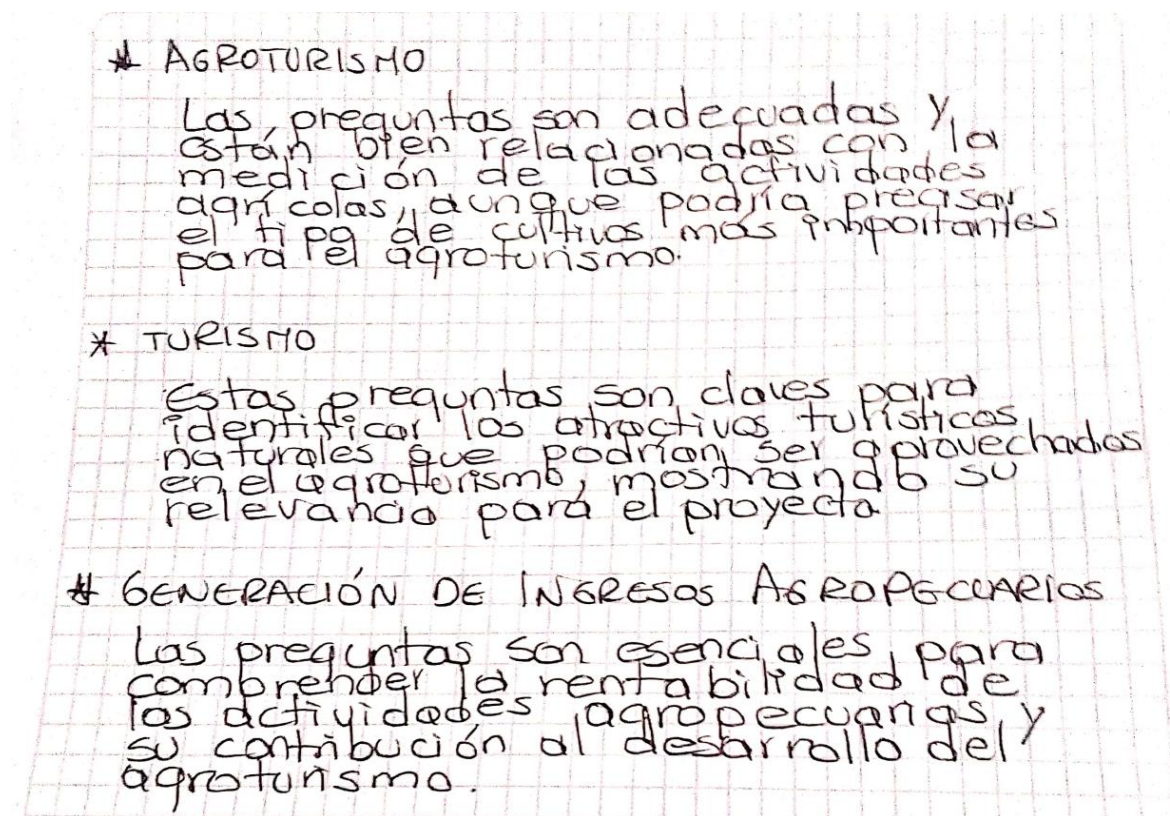 * AGROTURISMO
Las preguntas son adecuadas y
están bien relacionadas con la
medición de las actividades
agrícolas, aunque podría precisar
el tipo de cultivos más inmportantes
para el agroturismo.
* TURISMO
Estas preguntas son claves para
identificar los atractivos turísticos
naturales que podrían ser aprovechados
en el agroturismo, mostrando su
relevancia para el proyecto
* GENERACIÓN DE INGRESOS AGROPECUARIOS
Las preguntas son esenciales para
comprender la rentabilidad de
las actividades agropecuarias y
su contribución al desarrollo del
agroturismo.